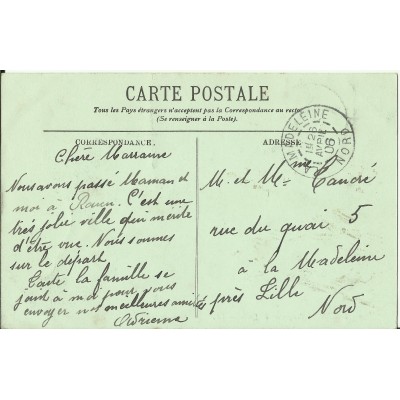 CARTE POSTALE
Tous les Pays étrangers n'acceptent pas la Correspondance au recto
(Se renseigner à la Poste).
CORRESPONDANCE
Chère Marraine
Nous avons passé Maman et
moi à Rouen. C'est une
très jolie ville qui mérite
d'être vue. Nous sommes
sur le départ.
Toute la famille se
joint à moi pour vous
envoyer nos meilleures amitiés
Adrienne
ADRESSE
LA MADELEINE
26
AVRIL
06
NORD
M. et Mme
rue du quai 5
à la Madeleine
près Lille
Nord